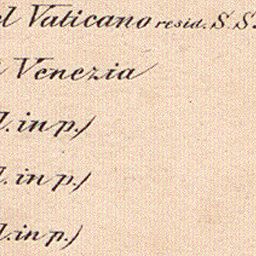 el Vaticano resid. S. S.
i Venezia
d. in p.)
d. in p.)
d. in p.)